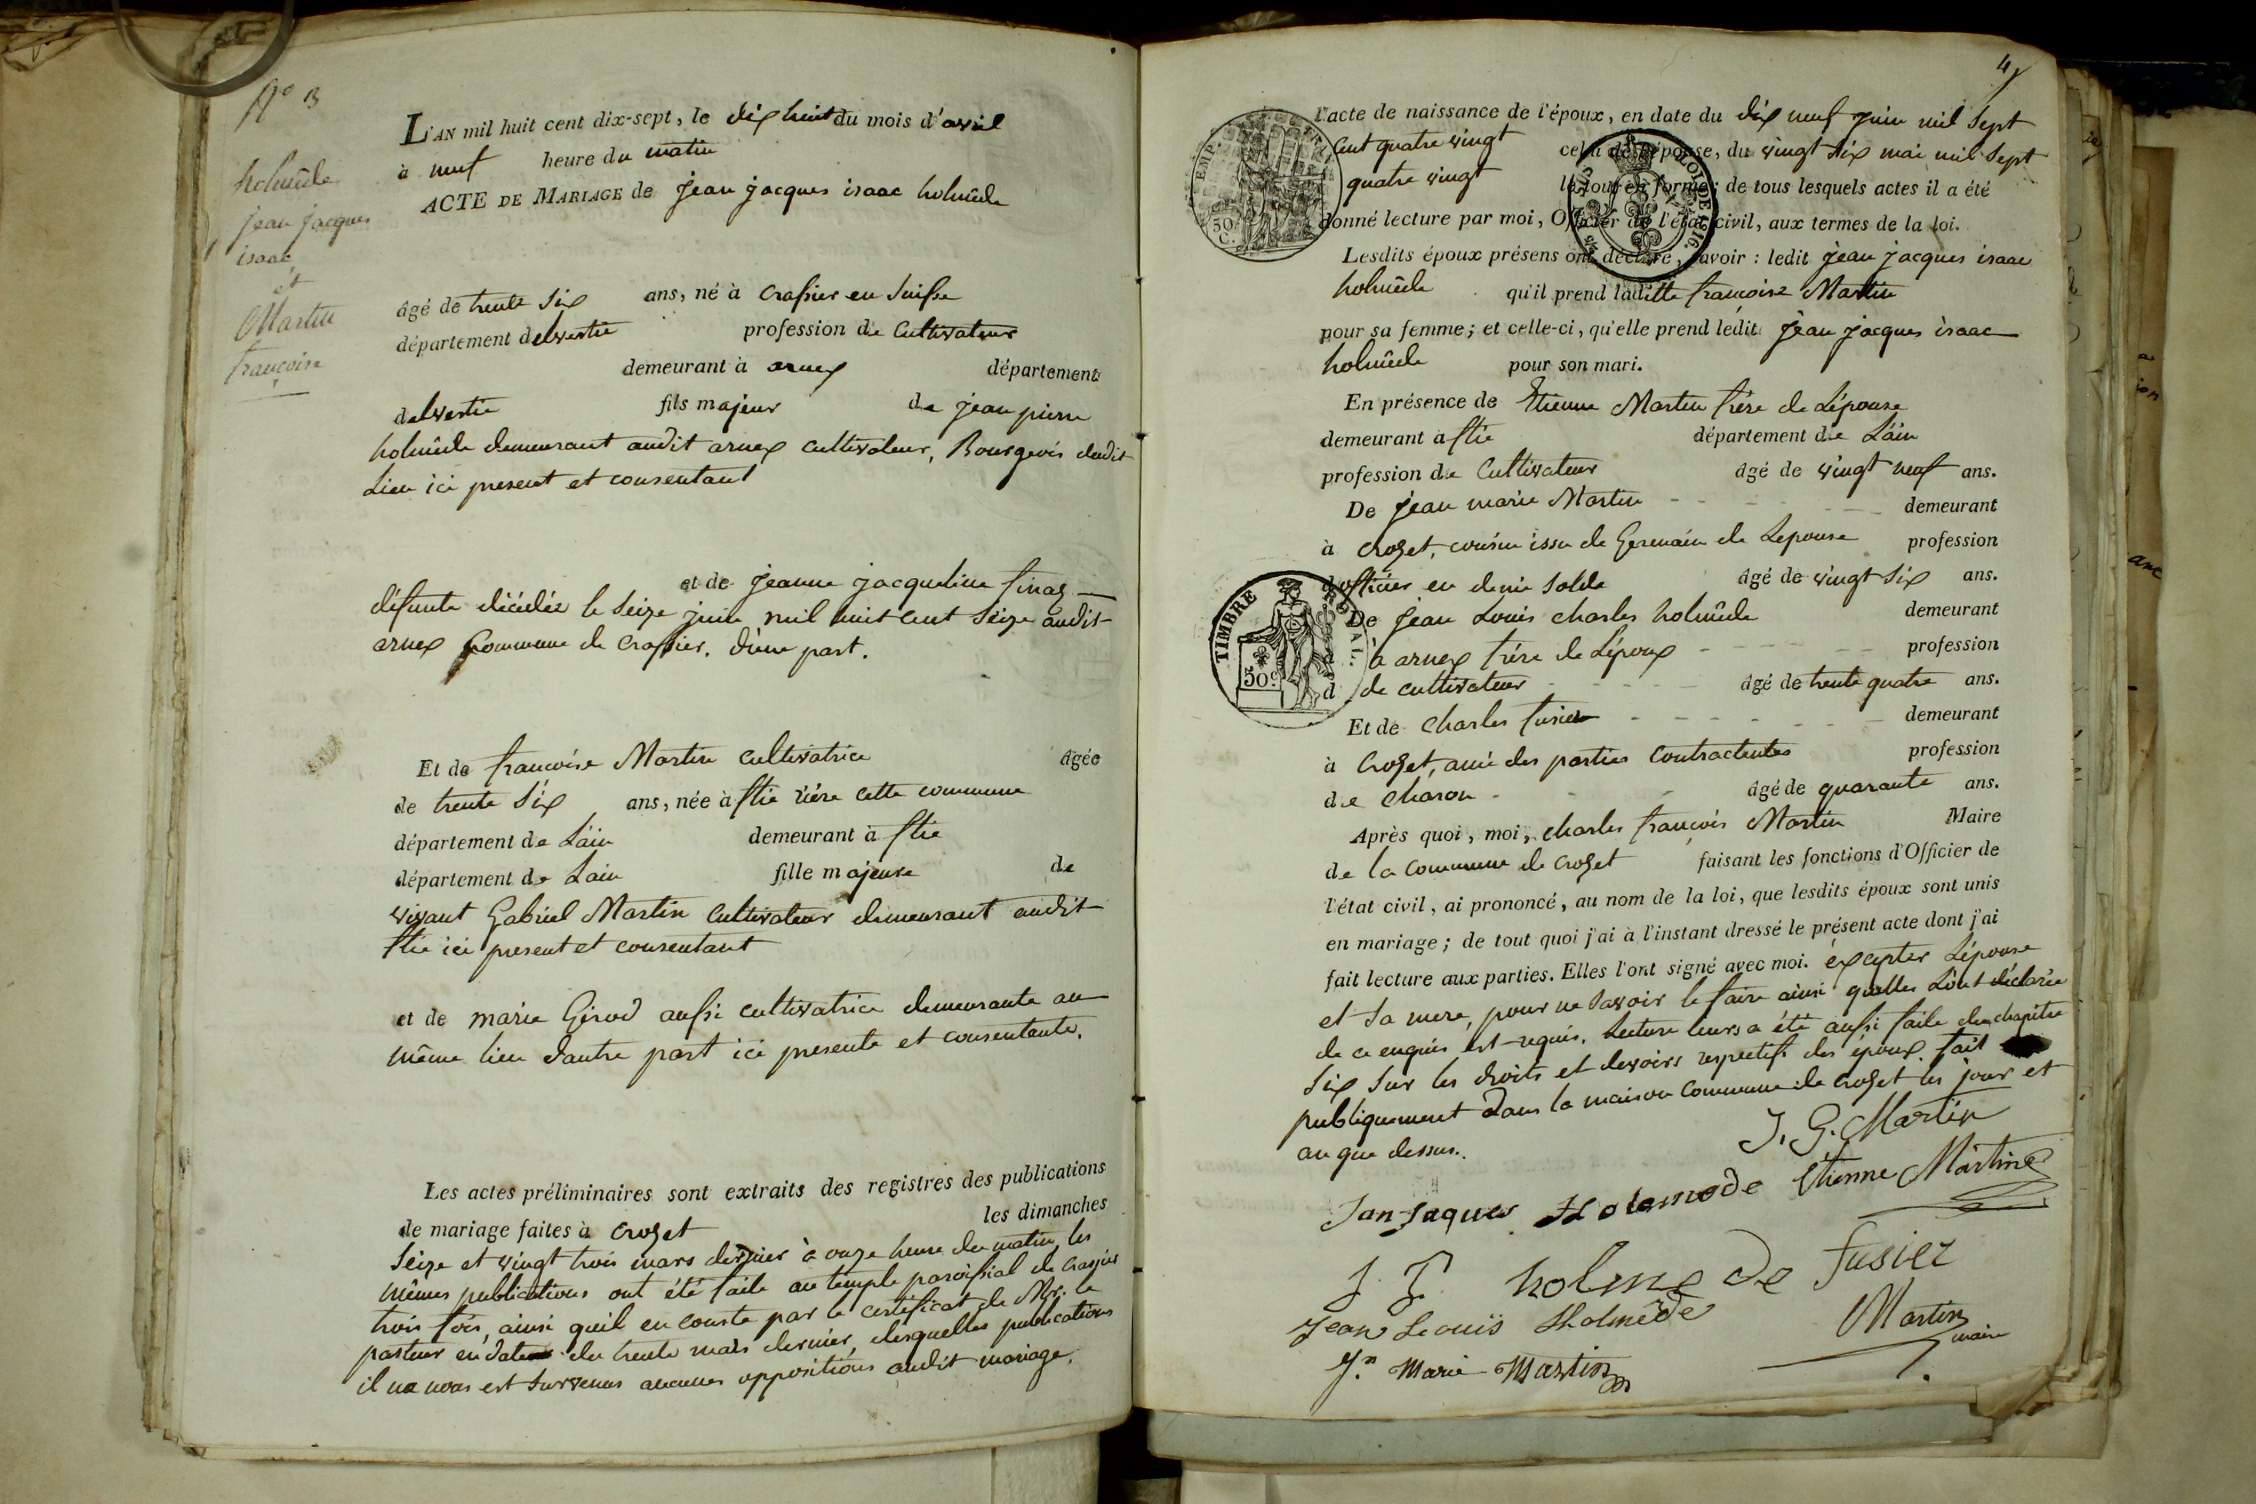 N° 3
holmêde
jean jacques
isaac
et
Martin
françoise
L'AN mil huit cent dix-sept, le dix huit du mois d'avril
à neuf heure du matin
ACTE DE MARIAGE de jean jacques isaac holmêde
âgé de trente six ans, né à Crassier en Suisse
département delvetie profession de Cultivateur
demeurant à arnex département
delvetie fils majeur de jean pierre
holmêde demeurant audit arnex cultivateur, Bourgeois dudit
Lieu ici present et consentant
et de jeanne jacqueline
défunte décédée le Seize juin mil huit cent Seize audit
arnex Commune de Crassier. d'une part.
Et de françoise Martin cultivatrice âgée
de trente Six ans, née à flie rière cette commune
département de Lain demeurant à flie
département de Lain fille majeure de
vivant Gabriel Martin Cultivateur demeurant audit
flie ici present et consentant
et de marie Girod aussi cultivatrice demeurante au
même lieu dautre part ici presente et consentante.
Les actes préliminaires sont extraits des registres des publications
de mariage faites à Crozet les dimanches
Seize et vingt trois mars dernier à onze heure du matin, les
mêmes publications ont été faite au temple paroissial de Crassier
trois fois, ainsi quil en conste par le certificat de Mr. le
pasteur en date du trente mars dernier, desquelles publications
il ne nous est survenus aucunes oppositions audit mariage.
4
l'acte de naissance de l'époux, en date du dix neuf juin mil Sept
Cent quatre vingt celui de l'épouse, du vingt Six mai mil Sept
quatre vingt le tout en forme; de tous lesquels actes il a été
donné lecture par moi, Officier de l'état civil, aux termes de la loi.
Lesdits époux présens ont déclaré, savoir : ledit jean jacques isaac
holmêde qu'il prend ladite françoise Martin
pour sa femme; et celle-ci, qu'elle prend ledit jean jacques isaac
holmêde pour son mari.
En présence de Etienne Martin frère de Lépouse
demeurant à flie département de Lain
profession de Cultivateur âgé de vingt neuf ans.
De jean marie Martin demeurant
à Crozet, cousin issu de Germain de Lepouse profession
d'officier en demie Solde âgé de vingt Six ans.
De jean Louis charles holmêde demeurant
à arnex frère de Lépoux profession
d de cultivateur âgé de trente quatre ans.
Et de Charles fusier demeurant
à Crozet, ami des parties Contractentes profession
de Charon âgé de quarante ans.
Après quoi, moi, charles françois Martin Maire
de la Commune de Crozet faisant les fonctions d'Officier de
l'état civil, ai prononcé, au nom de la loi, que lesdits époux sont unis
en mariage; de tout quoi j'ai à l'instant dressé le présent acte dont j'ai
fait lecture aux parties. Elles l'ont signé avec moi. excepter Lépouse
et Sa mere, pour ne Savoir le faire ainsi quelles Lont déclarée
de ce enquis est requis. Lecture leurs a été aussi faite du chapitre
Six Sur les droits et devoirs respectifs des époux. fait
publiquement dans la maison Commune de Crozet les jour et
an que dessus.
J. G. Martin
Jan Jaques Holemede Etienne Martin
J. P. holmede Fusier
Jean Leouis Holmêde
Martin
maire
Jn. Marie Martin
EMP.
50
C.
LOI DE 1816.
TIMBRE ROYAL.
50c